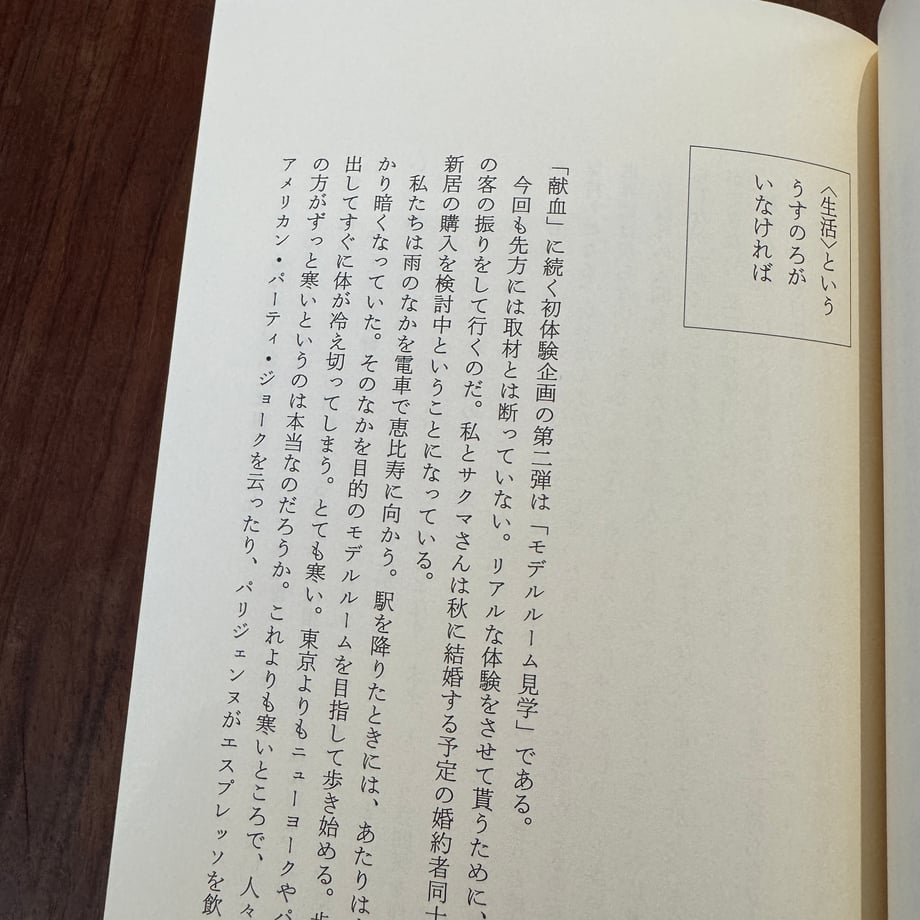 〈生活〉という
うすのろが
いなければ
「献血」に続く初体験企画の第二弾は「モデルルーム見学」である。
今回も先方には取材とは断っていない。リアルな体験をさせて貰うために、
の客の振りをして行くのだ。私とサクマさんは秋に結婚する予定の婚約者同士
新居の購入を検討中ということになっている。
私たちは雨のなかを電車で恵比寿に向かう。駅を降りたときには、あたりは
かり暗くなっていた。そのなかを目的のモデルルームを目指して歩き始める。歩
出してすぐに体が冷え切ってしまう。とても寒い。東京よりもニューヨークやパ
の方がずっと寒いというのは本当なのだろうか。これよりも寒いところで、人々
アメリカン・パーティ・ジョークを云ったり、パリジェンヌがエスプレッソを飲